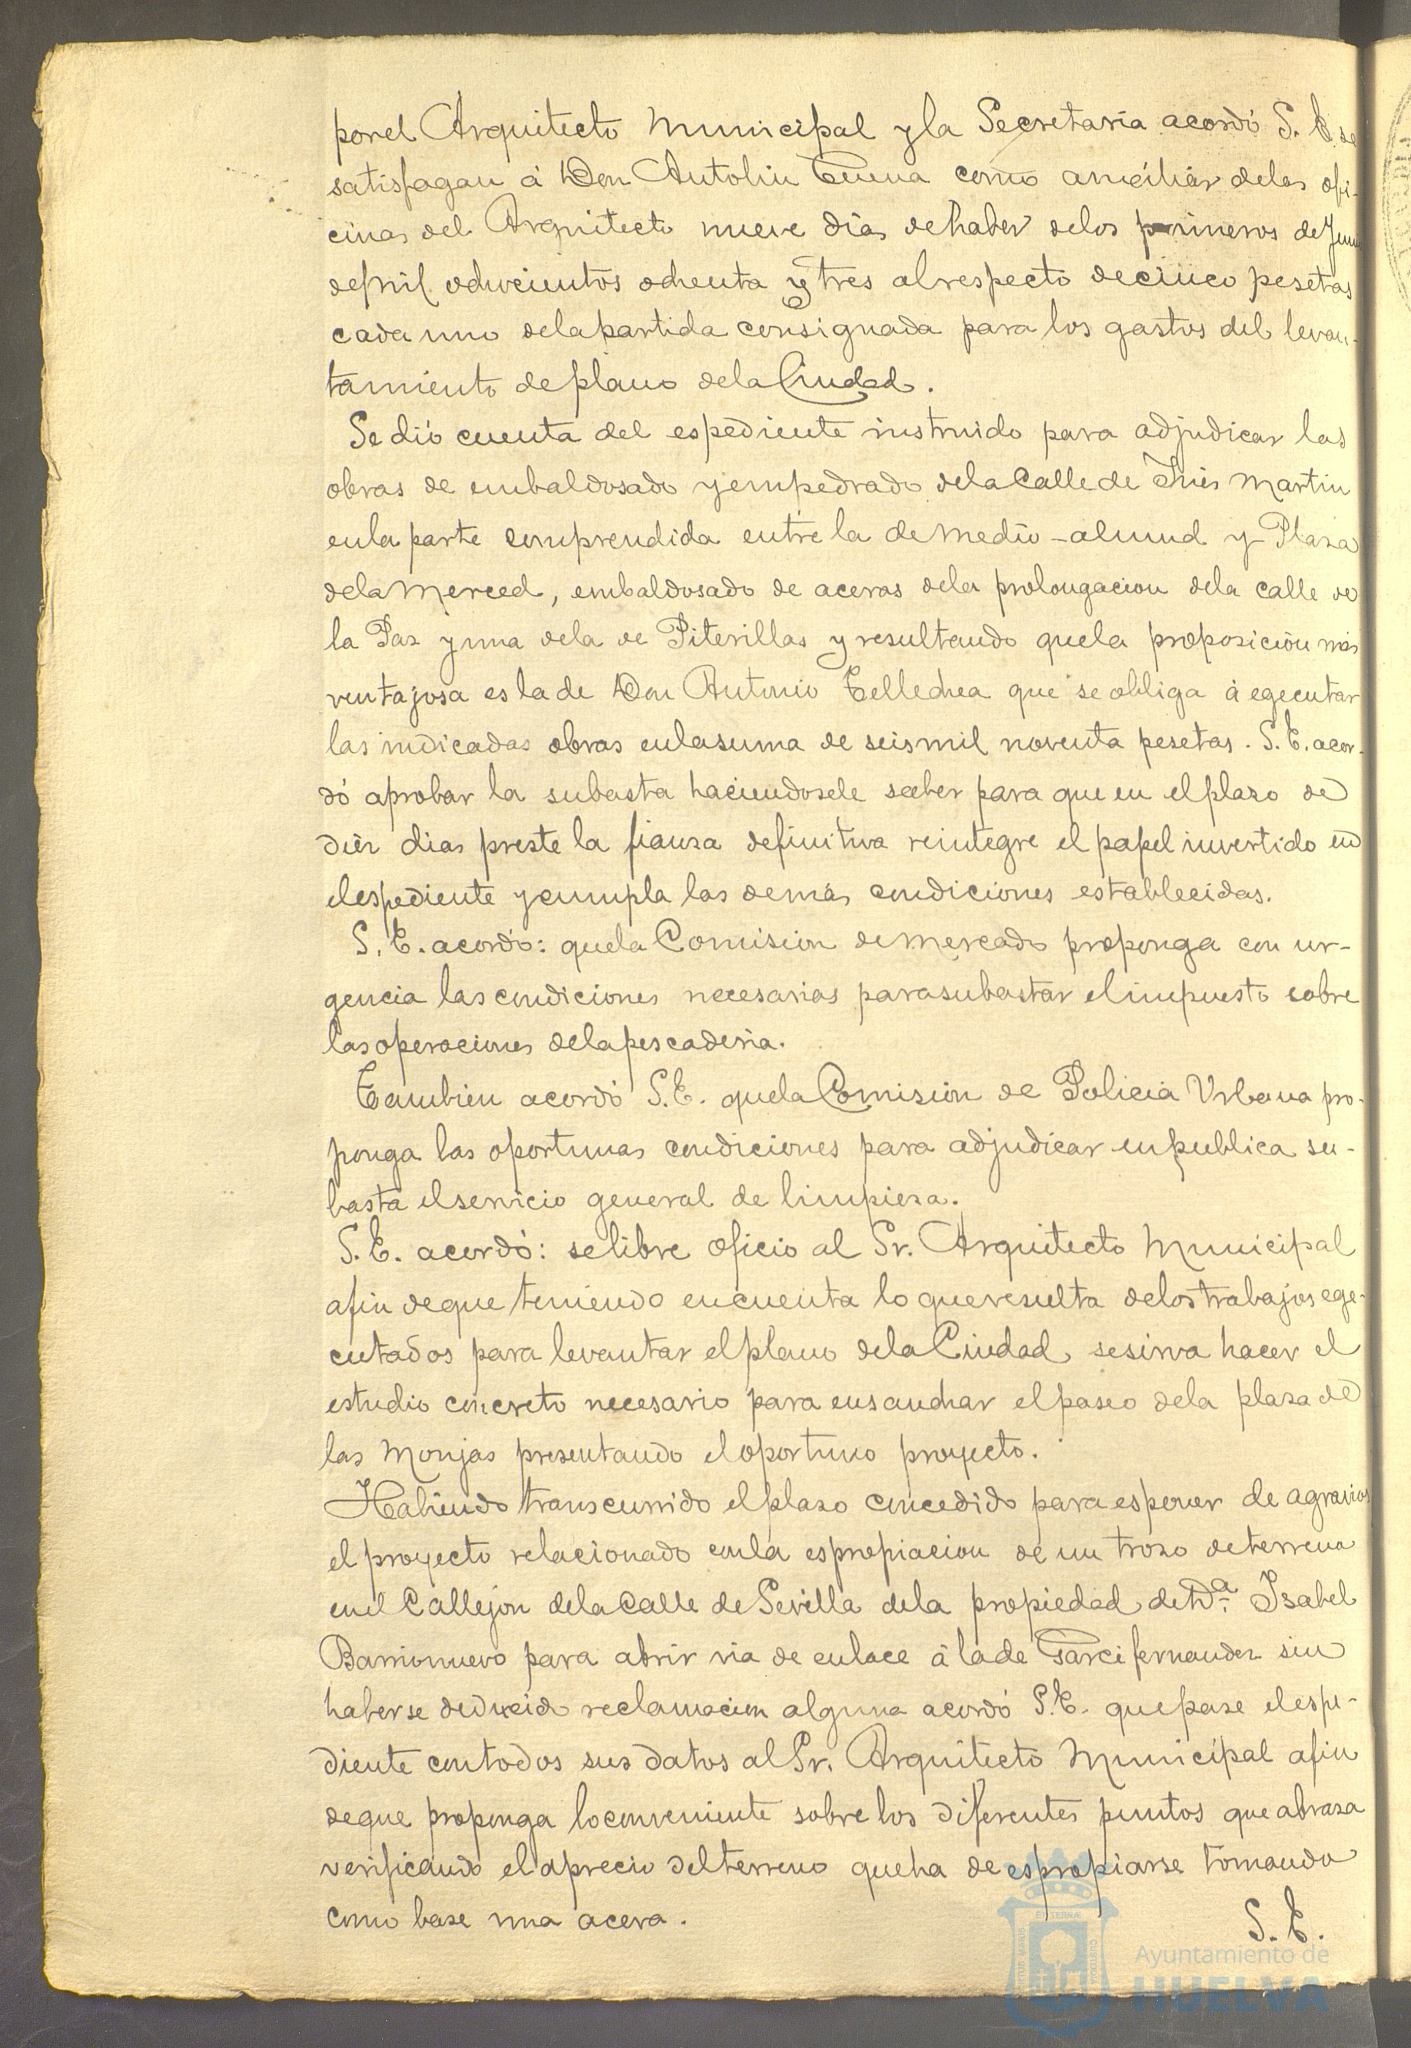 por el Arquitecto Municipal y la Secretaria acordó S. E. se
satisfagan á Don Antolin Cuena como auxiliar de las ofi-
cinas del Arquitecto nueve dias de haber de los primeros de
de mil ochocientos ochenta y tres al respecto de cinco pesetas
cada uno de la partida consignada para los gastos del levan-
tamiento de plano de la Ciudad.
Se dió cuenta del espediente instruido para adjudicar las
obras de embaldosado y empedrado de la Calle de Inés Martin
en la parte comprendida entre la de medio-almud y Plaza
de la Merced, embaldosado de aceras de la prolongacion de la calle de
la Paz y una de la de Piterillas y resultando que la proposición mas
ventajosa es la de Don Antonio Tellechea que se obliga á egecutar
las indicadas obras en la suma de seis mil noventa pesetas. S. E. acor-
dó aprobar la subasta haciendosele saber para que en el plazo de
diez dias preste la fianza definitiva reintegre el papel invertido en
el espediente y cumpla las demás condiciones establecidas.
S. E. acordó: que la Comision de mercado proponga con ur-
gencia las condiciones necesarias para subastar el impuesto sobre
las operaciones de la pescaderia.
Tambien acordó S. E. que la Comisión de Policia Urbana pro-
ponga las oportunas condiciones para adjudicar en publica su-
basta el servicio general de limpieza.
S. E. acordó: se libre oficio al Sr. Arquitecto Municipal
afin de que teniendo en cuenta lo que resulta de los trabajos ege-
cutados para levantar el plano de la Ciudad, se sirva hacer el
estudio concreto necesario para ensanchar el paseo de la plaza de
las Monjas presentando el oportuno proyecto.
Habiendo transcurrido el plazo concedido para esponer de agravios
el proyecto relacionado con la espropiacion de un trozo de terreno
en el Callejon de la Calle de Sevilla de la propiedad de D.ª Isabel
Barrionuevo para abrir via de enlace á la de Garcifernandez sin
haberse deducido reclamacion alguna acordó S. E. que pase el espe-
diente con todos sus datos al Sr. Arquitecto Municipal afin
de que proponga lo conveniente sobre los diferentes puntos que abraza
verificando el aprecio del terreno que ha de espropiarse tomando
como base una acera.
S. E.
Ayuntamiento de
HUELVA